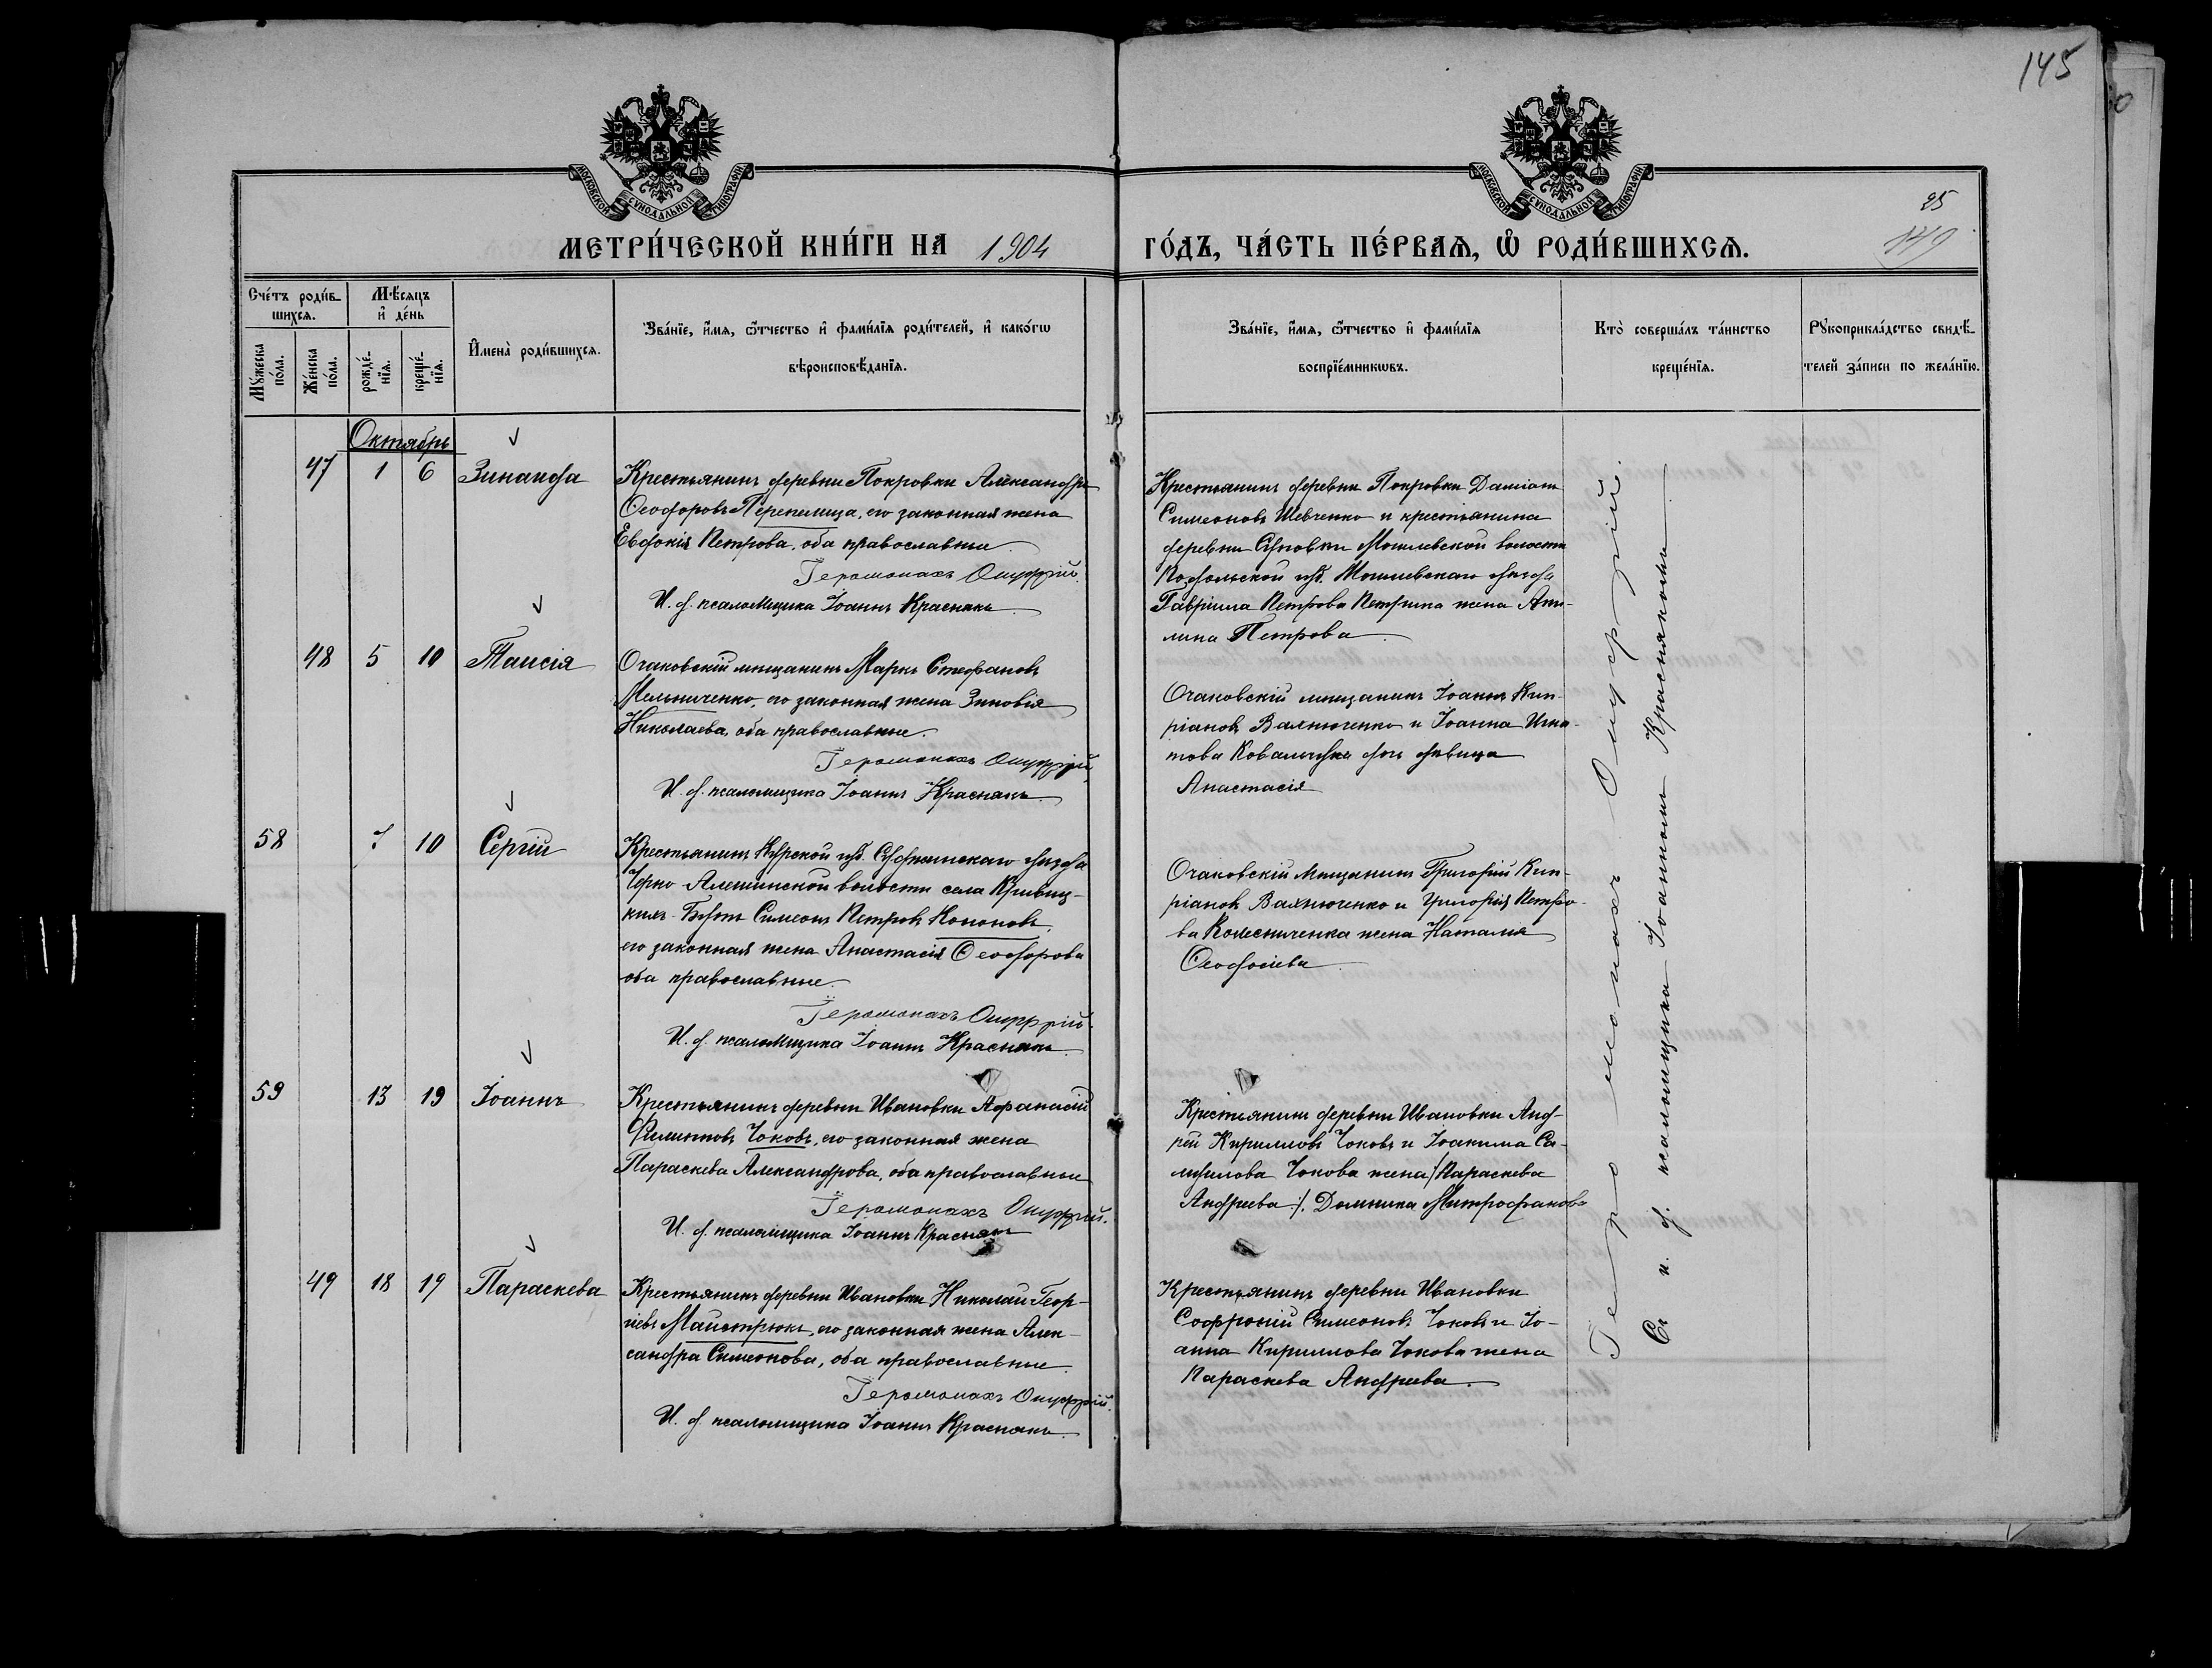 145
МОСКОВСКОЙ СУНОДАЛЬНОЙ ТИПОГРАФІИ
МОСКОВСКОЙ СУНОДАЛЬНОЙ ТИПОГРАФІИ
25
149
МЕТРИ́ЧЕСКОЙ КНИ́ГИ НА 1904 ГО́ДЪ, ЧА́СТЬ ПЕ́РВАЯ, Ѽ РОДИ́ВШИХСѦ.
Сче́тъ роди́в-
шихсѧ.
Мꙋжеска по́ла.
Же́нска по́ла.
Мѣ́сѧцъ и҆ де́нь
рожде́-нїѧ.
креще́-нїѧ.
И҆мена̀ роди́вшихсѧ.
Зва́нїе, и҆́мѧ, ѻ҆́тчество и҆ фами́лїѧ роди́телей, и҆ како́гѡ
вѣроисповѣ́данїѧ.
Зва́нїе, и҆́мѧ, ѻ҆́тчество и҆ фами́лїѧ
воспрїе́мникѡвъ.
Кто̀ соверша́лъ та́инство
креще́нїѧ.
Рꙋкоприкла́дство свидѣ́-
телей за́писи по жела́нїю.
Октябрь
47 1 6 Зинаида
Крестьянинъ деревни Покровки Александръ
Ѳеодоровъ Перепелица, его законная жена
Евдокія Петрова, оба православные.
Іеромонахъ Онуфрій.
И. д. псаломщика Іоаннъ Краснякъ.
Крестьянинъ деревни Покровки Даміанъ
Симеоновъ Шевченко и крестьянина
деревни Могилевской волости
Подольской губ. Могилевскаго уѣзда
Гавріила Петрова жена
Петрова.
48 5 10 Таисія
Очаковскій мѣщанинъ Маркъ Стефановъ
Мельниченко, его законная жена Зиновія
Николаева, оба православные.
Іеромонахъ Онуфрій.
И. д. псаломщика Іоаннъ Краснякъ.
Очаковскій мѣщанинъ Іоаннъ Кип-
ріановъ Вахнюченко и Іоанна Игна-
това Ковальчука дочь дѣвица
Анастасія
58 7 10 Сергій
Крестьянинъ Курской губ. Суджанскаго уѣзда
Черно-Алешинской волости села Кривиц-
кихъ-Будъ Симеонъ Петровъ Кононовъ,
его законная жена Анастасія Ѳеодорова
оба православные.
Іеромонахъ Онуфрій.
И. д. псаломщика Іоаннъ Краснякъ.
Очаковскій мѣщанинъ Григорій Кип-
ріановъ Вахнюченко и Григорія Петро-
ва Колесниченка жена Наталія
Ѳеодосіева.
59 13 19 Іоаннъ
Крестьянинъ деревни Ивановки Аѳанасій
Филипповъ Чоковъ, его законная жена
Параскева Александрова, оба православные
Іеромонахъ Онуфрій.
И. д. псаломщика Іоаннъ Краснякъ
Крестьянинъ деревни Ивановки Анд-
рей Кирилловъ Чоковъ и Іоакима Са-
муилова Чокова жена /Параскева
Андреева/. Домника Митрофанова
49 18 19 Параскева
Крестьянинъ деревни Ивановки Николай Геор-
гіевъ Майстрюкъ, его законная жена Алек-
сандра Симеонова, оба православные.
Іеромонахъ Онуфрій.
И. д. псаломщика Іоаннъ Краснякъ.
Крестьянинъ деревни Ивановки
Софроній Симеоновъ Чоковъ и Іо-
анна Кириллова Чокова жена
Параскева Андреева.
Іеромонахъ Онуфрій.
Съ и. д. псаломщика Іоанномъ Краснякомъ